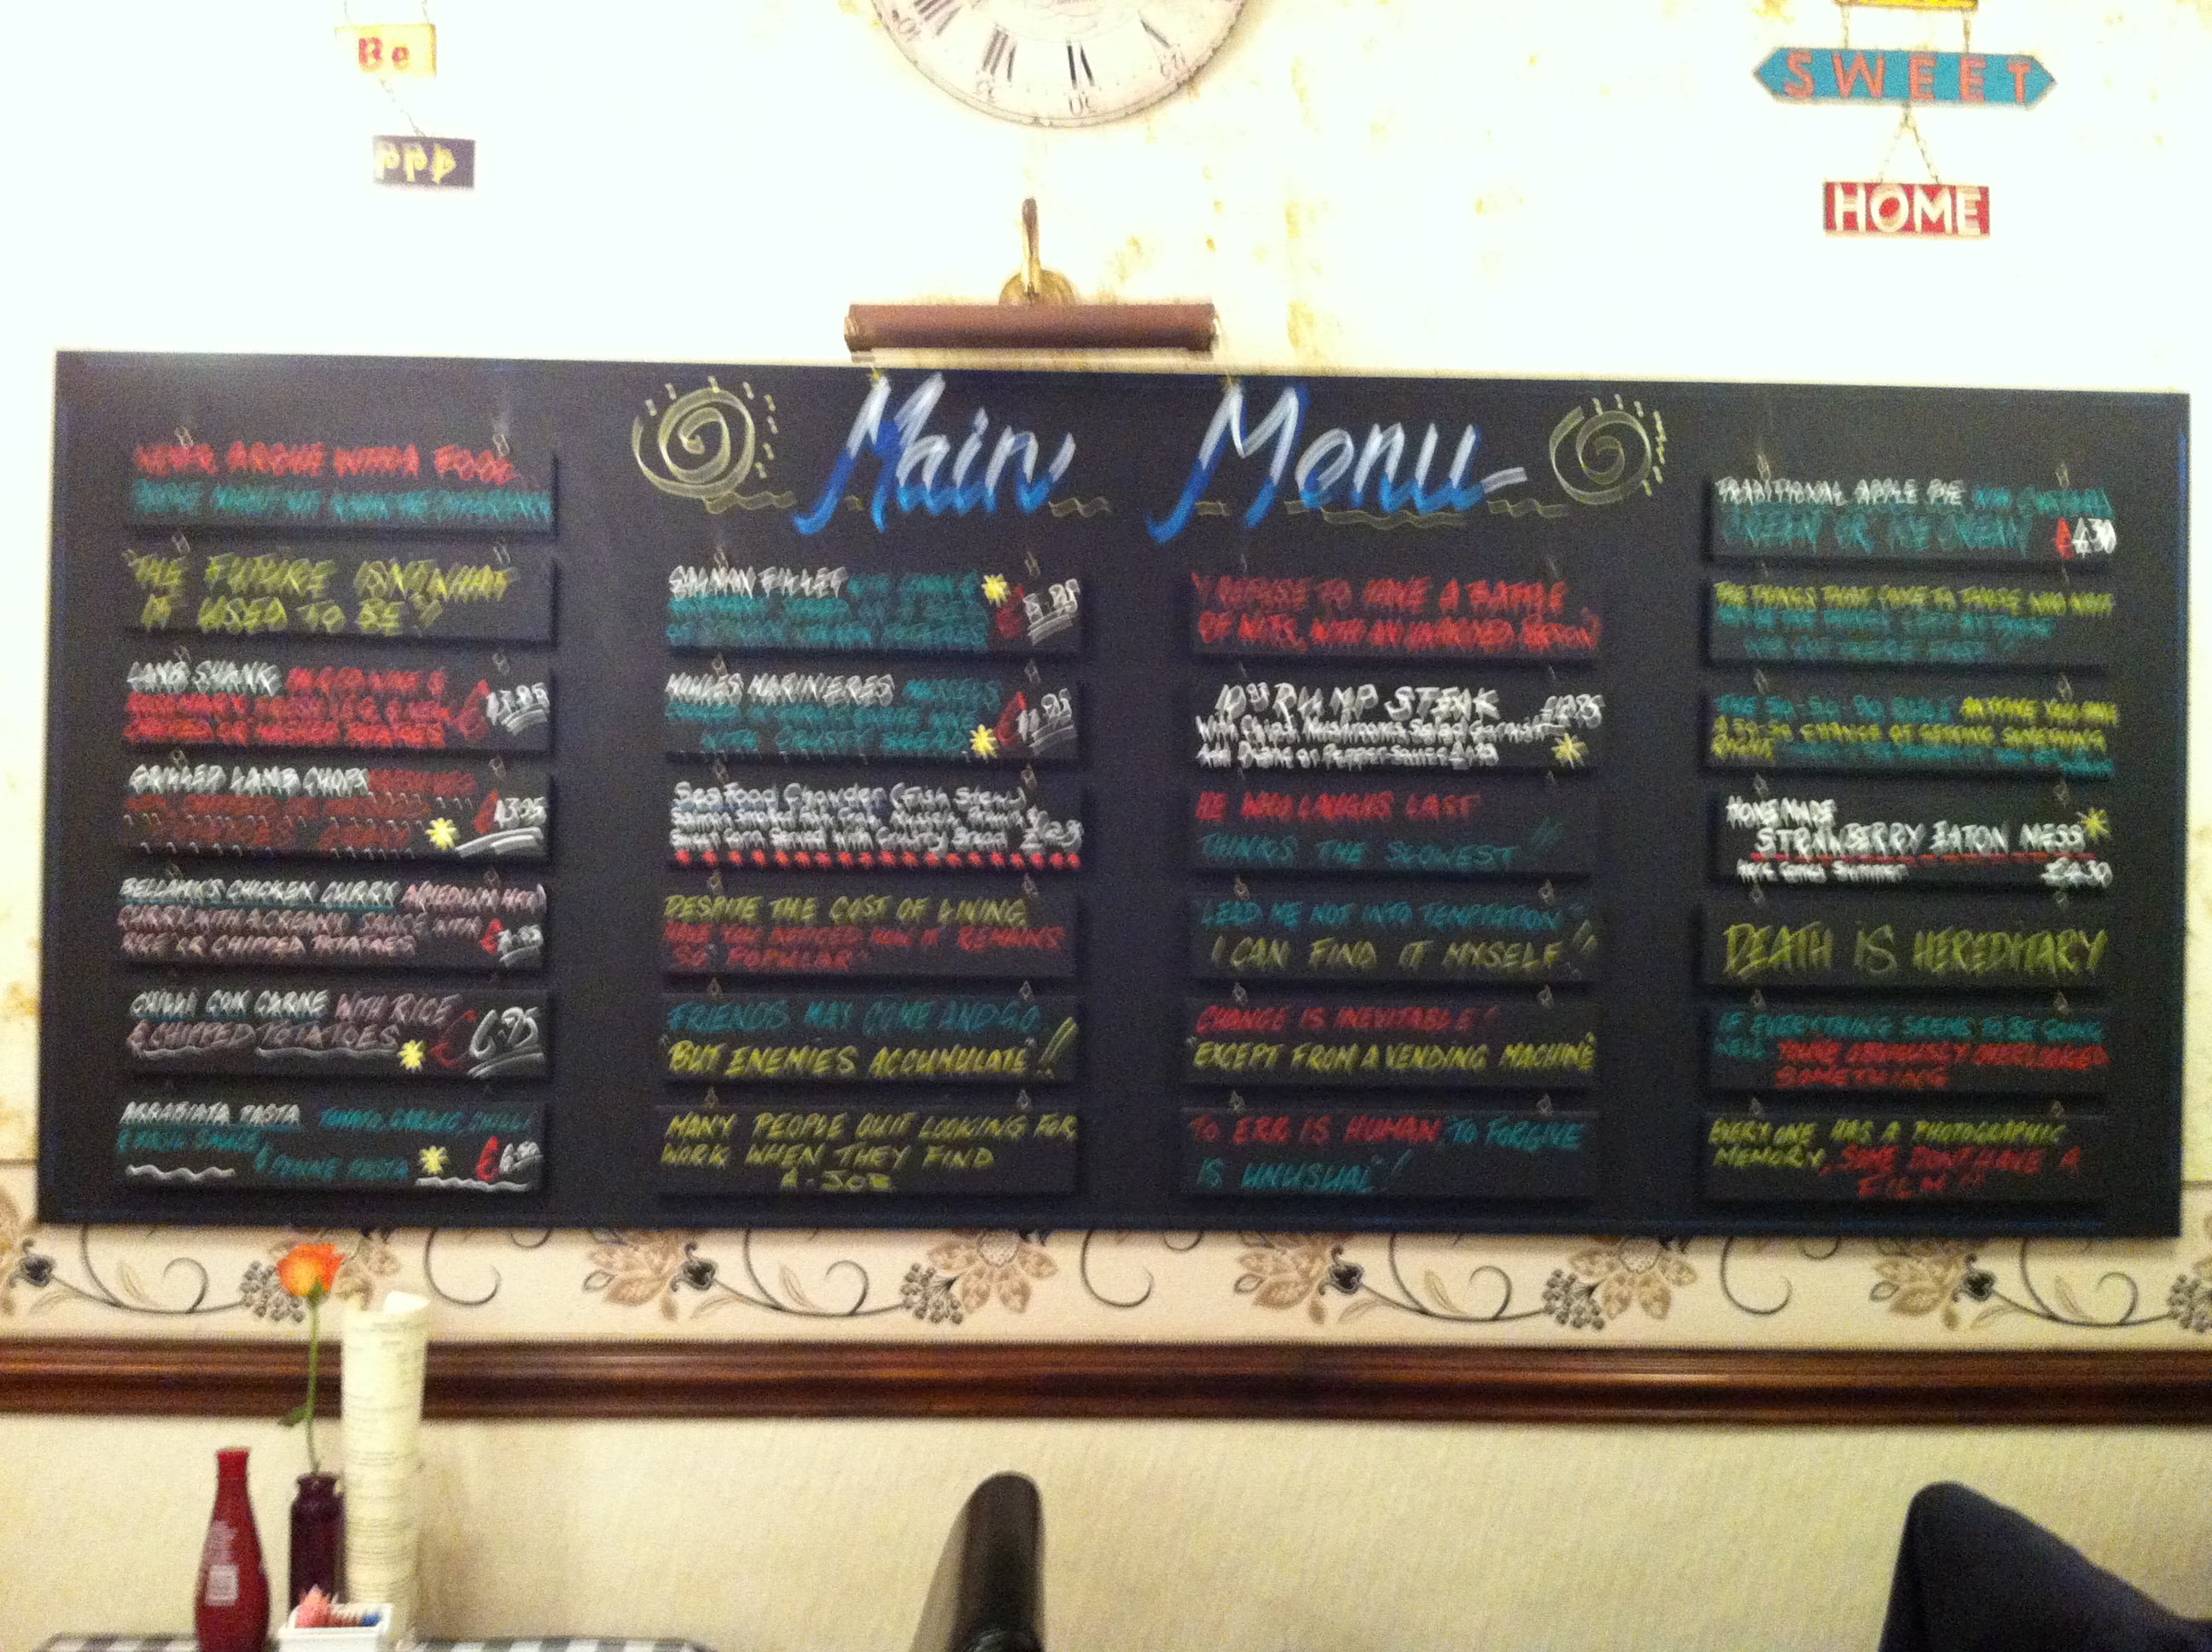 Be
SWEET
HOME
Main Menu
NEVER ARGUE WITH A FOOL
PEOPLE MIGHT NOT KNOW THE DIFFERENCE
"THE FUTURE ISN'T WHAT
IT USED TO BE"
LAMB SHANK
OR MASHED POTATOES
GRILLED LAMB CHOPS
13.95
BELLAMY'S CHICKEN CURRY A MEDIUM HOT
CURRY WITH A CREAMY SAUCE WITH
RICE OR CHIPPED POTATOES
CHILLI CON CARNE WITH RICE
& CHIPPED POTATOES £6.95
ARRABIATA PASTA TOMATO, GARLIC, CHILLI
& BASIL SAUCE
& PENNE PASTA £6.50
SALMON FILLET
MOULES MARINIERES MUSSELS
WITH CRUSTY BREAD
Sea Food Chowder (Fish Stew)
Salmon Smoked Fish Cod Mussels Prawns
Sweet Corn Served With Crusty Bread
DESPITE THE COST OF LIVING
HAVE YOU NOTICED HOW IT REMAINS
SO POPULAR
FRIENDS MAY COME AND GO
"BUT ENEMIES ACCUMULATE"!!
MANY PEOPLE QUIT LOOKING FOR
WORK WHEN THEY FIND
A - JOB
I REFUSE TO HAVE A BATTLE
OF WITS, WITH AN UNARMED PERSON
10oz RUMP STEAK
With Chips, Mushrooms Salad Garnish
Add Diane or Pepper Sauce
HE WHO LAUGHS LAST
THINKS THE SLOWEST!!
LEAD ME NOT INTO TEMPTATION
I CAN FIND IT MYSELF!!
CHANGE IS INEVITABLE!
"EXCEPT FROM A VENDING MACHINE"
TO ERR IS HUMAN, TO FORGIVE
IS UNUSUAL"!
TRADITIONAL APPLE PIE WITH CUSTARD
CREAM OR ICE CREAM £4.30
THE THINGS THAT COME TO THOSE WHO WAIT
WILL BE THE THINGS LEFT BY THOSE
WHO GOT THERE FIRST
THE 50-50-90 RULE ANYTIME YOU HAVE
A 50-50 CHANCE OF GETTING SOMETHING
RIGHT
HOME MADE
STRAWBERRY EATON MESS
£4.30
DEATH IS HEREDITARY
IF EVERYTHING SEEMS TO BE GOING
WELL YOU'VE OBVIOUSLY OVERLOOKED
SOMETHING
EVERYONE HAS A PHOTOGRAPHIC
MEMORY, SOME DON'T HAVE A
FILM!!